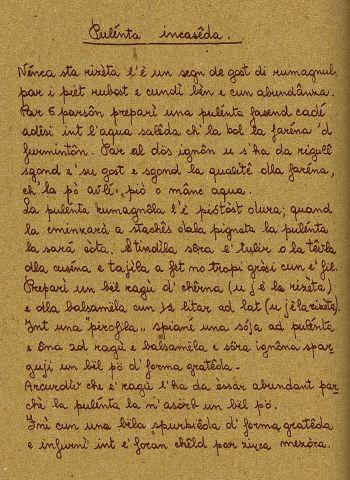 Pulénta incasêda.
Nénca sta rizèta l'è un segn de gost di rumagnul
par i piét rubost e cundì bèn e cun abundânza.
Par 6 parsôn preparì una pulénta fasend cadé
adêsi int l'aqua salêda ch'la bol la faréna 'd
furmintôn. Par al dös ignôn u s'ha da regulê
sgond e' su gost e sgond la qualitê dla faréna,
ch'la pò avlì piò o mânc aqua.
La pulénta rumagnôla l'è piótòst dura; quand
la cminzarà a stachês dala pignata la pulénta
la sarà còta. Stindìla sôra e' tulir o la têvla
dla cuséna e tajìla a fèt no tropi gròsi cun e' fil.
Preparì un bèl ragù d'chêrna (u j è la rizèta)
e dla balsamèla cun 1/2 litar ad lat (u j è la rizèta).
Int una "pirofila" spianì una sója ad pulénta
e ôna 2d ragù e balsamèla e sôra ignôna spar-
guji un bèl pö d'forma gratêda.
Arcurdìv che e' ragù l'ha da èssar abundant par-
chè la pulénta la n'asôrb un bèl pö.
Finì cun una bèla spurbiêda d'forma gratêda
e infurnì int e' foran chêld par zirca mezóra.